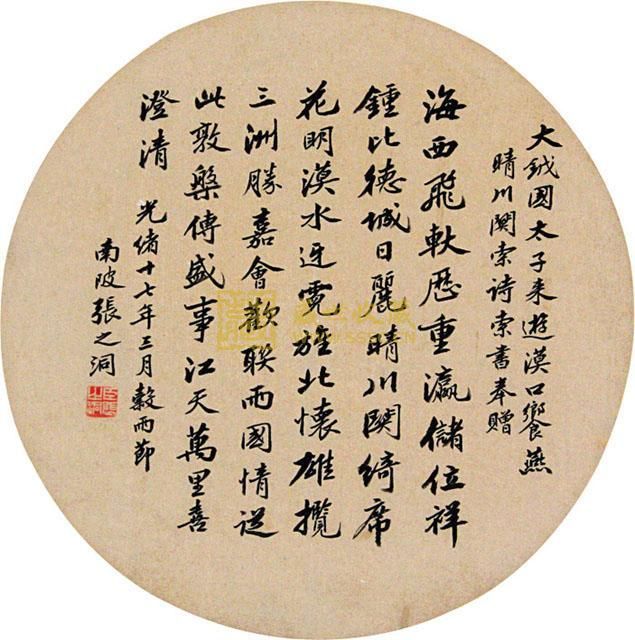 大鉞國太子来遊漢口饗燕
晴川閣索诗索書奉贈
海西飛軼歷重瀛儲位祥
鍾比德城日麗晴川開綺席
花明漢水迓霓旌北懷雄攬
三洲勝嘉會歡聯兩國情從
此敦槃傳盛事江天萬里喜
澄清 光緒十七年三月穀雨節
南陂張之洞